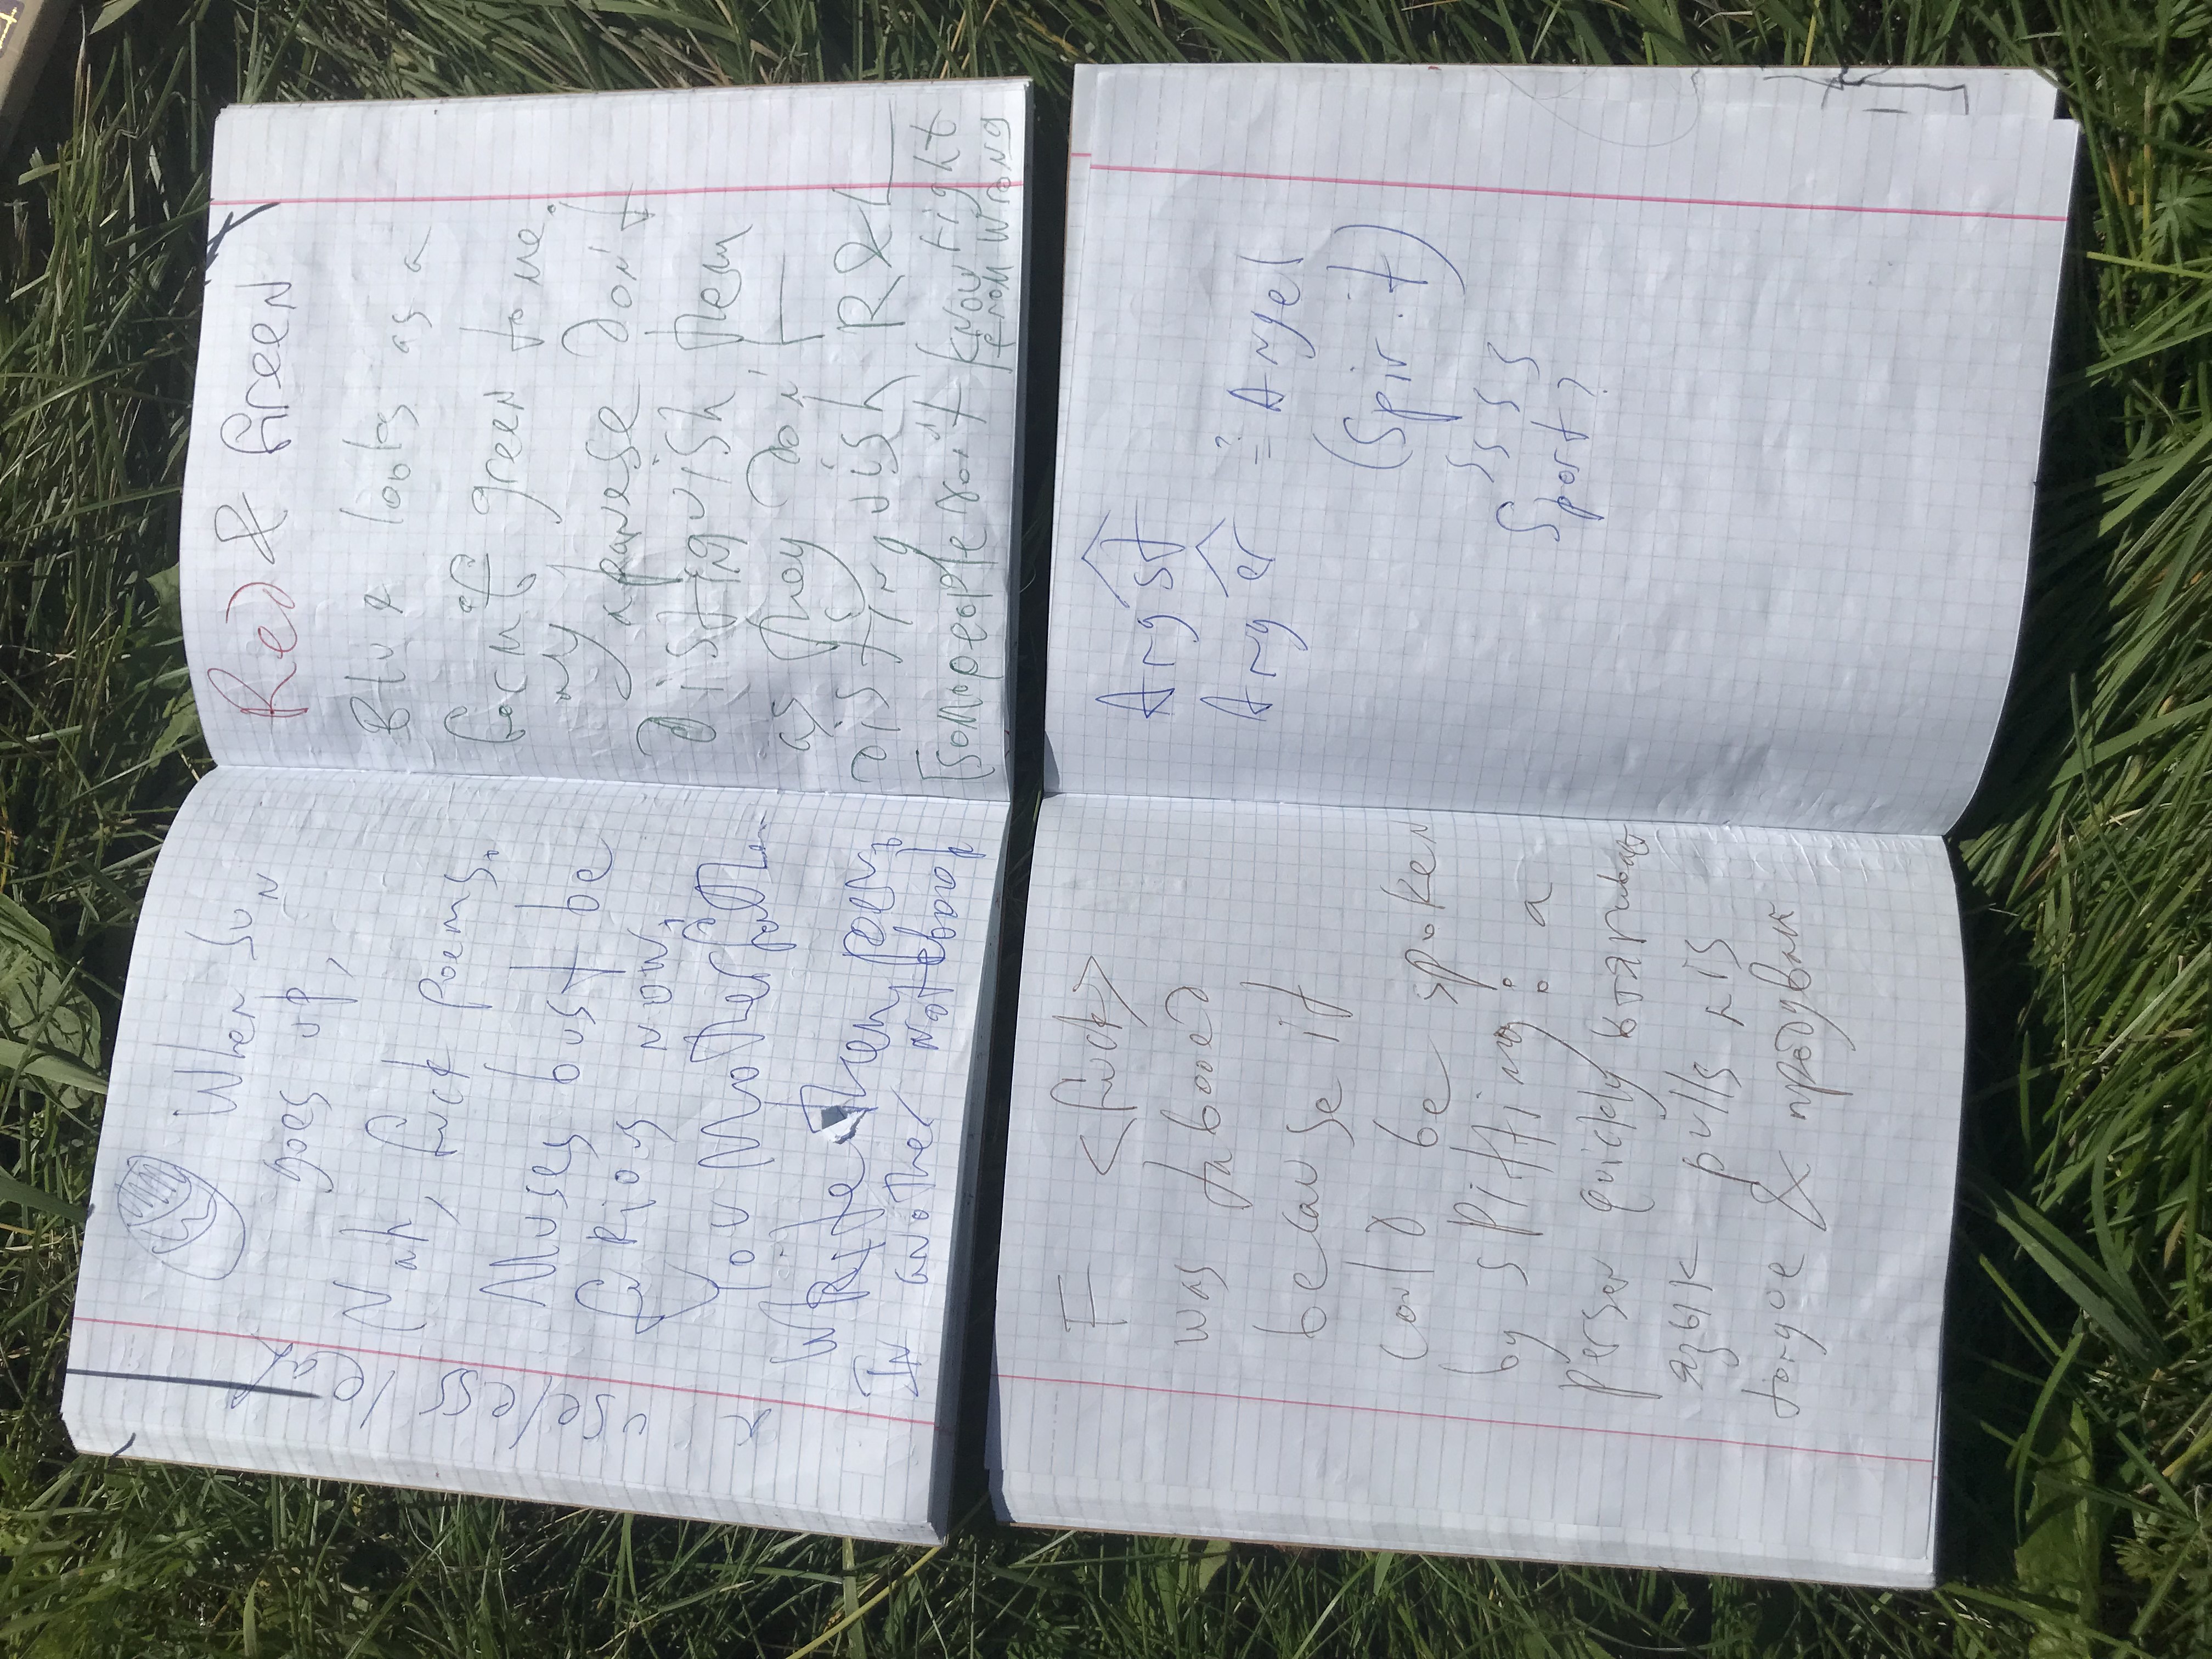 When Sun
goes up,
Nah, fuck poems.
Muses bust be
furious now,
You Motherfather
Write them poems
In another notebook
useless leaf
Red & Green
Blue looks as a
form of green to me.
my Japanese don't
distinguish them
as they don't
distinguish R & L
[some people don't know right
from wrong
F <fuck>
was tabooed
because it
could be spoken
by spitting: a
person quickly втягивает
язык pulls his
tongue & продувает
Angst
Anger ≟ Angel
(Spirit)
ssss
Sport?